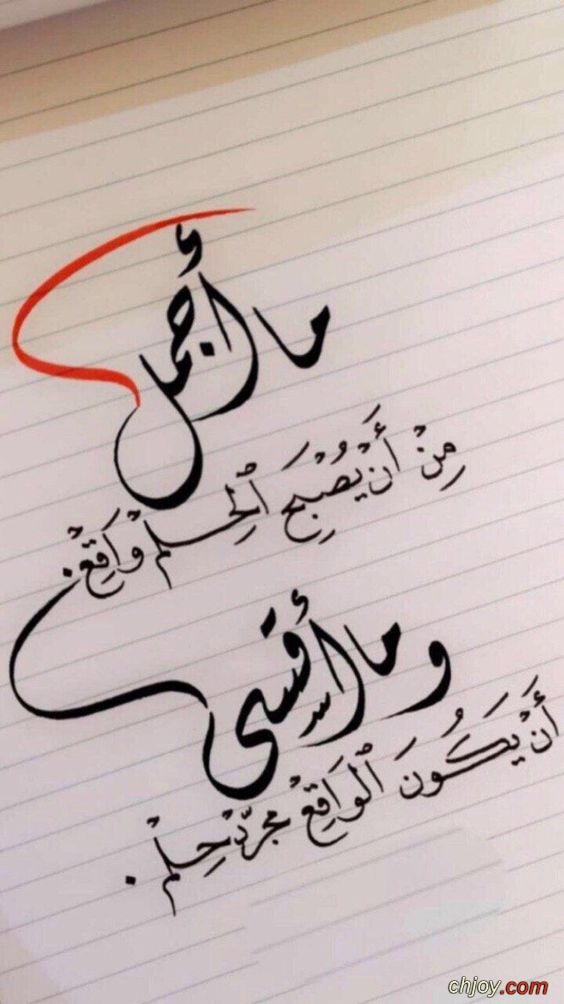 ما أجمل
مِنْ أَنْ يُصْبِحَ ٱلْحِلمْ وَاقِعْ.
وما أقسى
أَنْ يَكُونَ ٱلْوَاقِعْ مجرّدْ حِلمْ.
chjoy.com